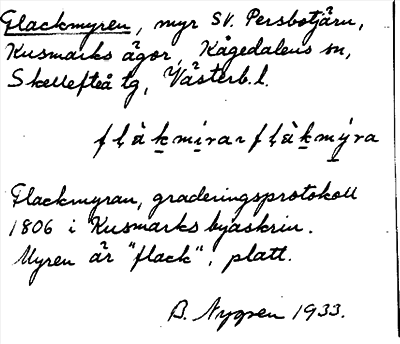 Flackmyren, myr SV. Persbotjärn,
Kusmarks ägor, Kågedalens sn,
Skellefteå tg, Västerb. l.
flàk̲mi̲rar flàk̲my̲ra
Flackmyran, graderingsprotokoll
1806 i Kusmarks byaskrin.
Myren är "flack", platt.
B. Nygren 1933.